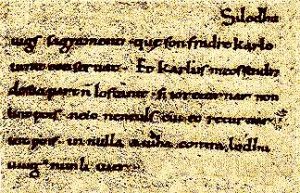 Silodhu
uigs sagrament. que son fradre karlo
iurat conseruat. Et karlus meossendra
desuo part n lostanit. si ioreturnar non
lint pois. neio neneuls cui eo returnar
int pois. in nulla aiudha contra lodhu
uuig nun li iuer.